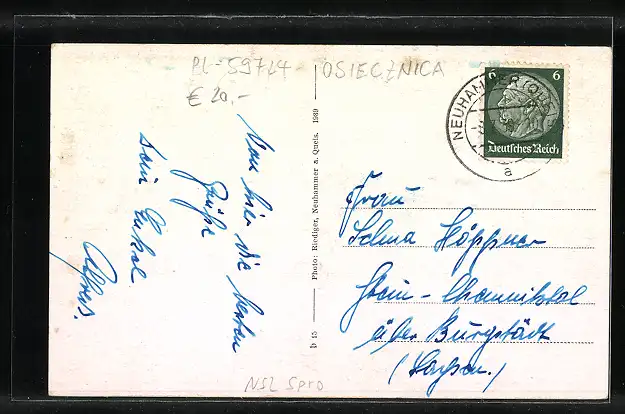 PL-59724 OSIECZNICA
€ 20,-
Von hier die besten
Grüße
sein Enkel
Alfred.
Photo: Riediger, Neuhammer a. Queis. 1939
b 15
NEUHAMMER (QUEIS)
a
6 6
Deutsches Reich
Frau
Selma Höppner
Stein-Chemnitztal
über Burgstädt
(Sachsen.)
NSL Spro